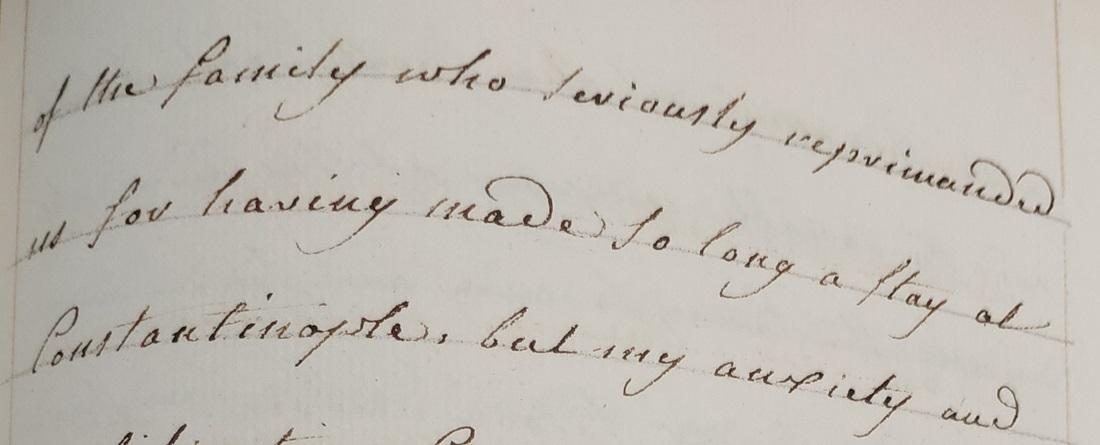 of the family who seriously reprimanded
us for having made so long a stay at
Constantinople, but my anxiety and